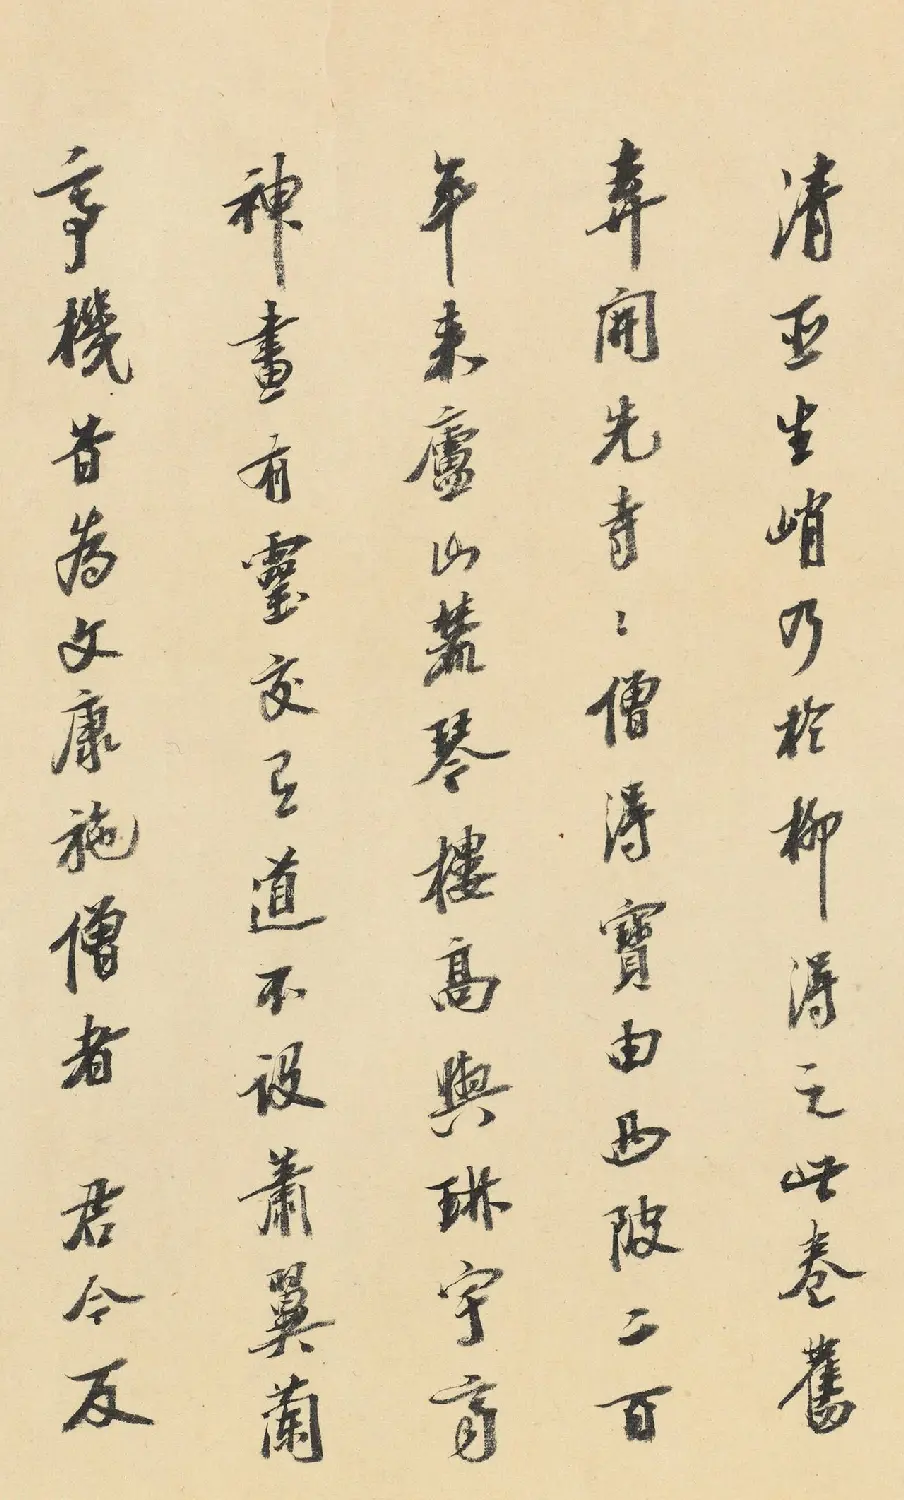 清亟生峭乃於柳得之此卷舊
弆開先寺〻僧得寶由西陂二百
年來廬山麓琴樓高與琳宇齊
神畫有靈交㠯道不設蕭翼蘭
亭機昔為文康施僧者 君今反